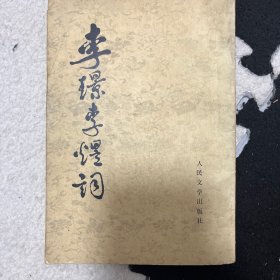 李璟李煜词
人民文学出版社